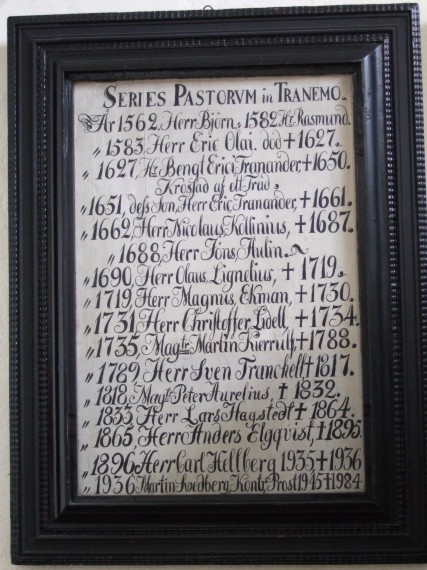 SERIES PASTORVM in TRANEMO.
År 1562, Herr Björn, 1582 Hr Rasmund.
" 1583, Herr Eric Olai, död + 1627.
" 1627, Hr Bengt Erici Tranander, + 1650.
Krostad af ett Träd.
" 1651, dess Son, Herr Eric Tranander, + 1661.
" 1662, Herr Nicolaus Kollinius, + 1687.
" 1688, Herr Jöns, Hulin.
" 1690, Herr Olaus, Lignelius, + 1719.
" 1719 Herr Magnus, Ekman, + 1730.
" 1731 Herr Christoffer Lidell + 1734.
" 1735, Magtr Martin Kierrulf, + 1788.
" 1789 Herr Sven Tranchell + 1817.
" 1818, Magtr Peter Aurelius, + 1832.
" 1833 Herr Lars Hagstedt + 1864.
" 1865, Herr Anders Elgqvist, + 1895.
" 1896 Herr Carl Hillberg 1935 + 1936
" 1936 Martin Kontr. Prost 1945 + 1984